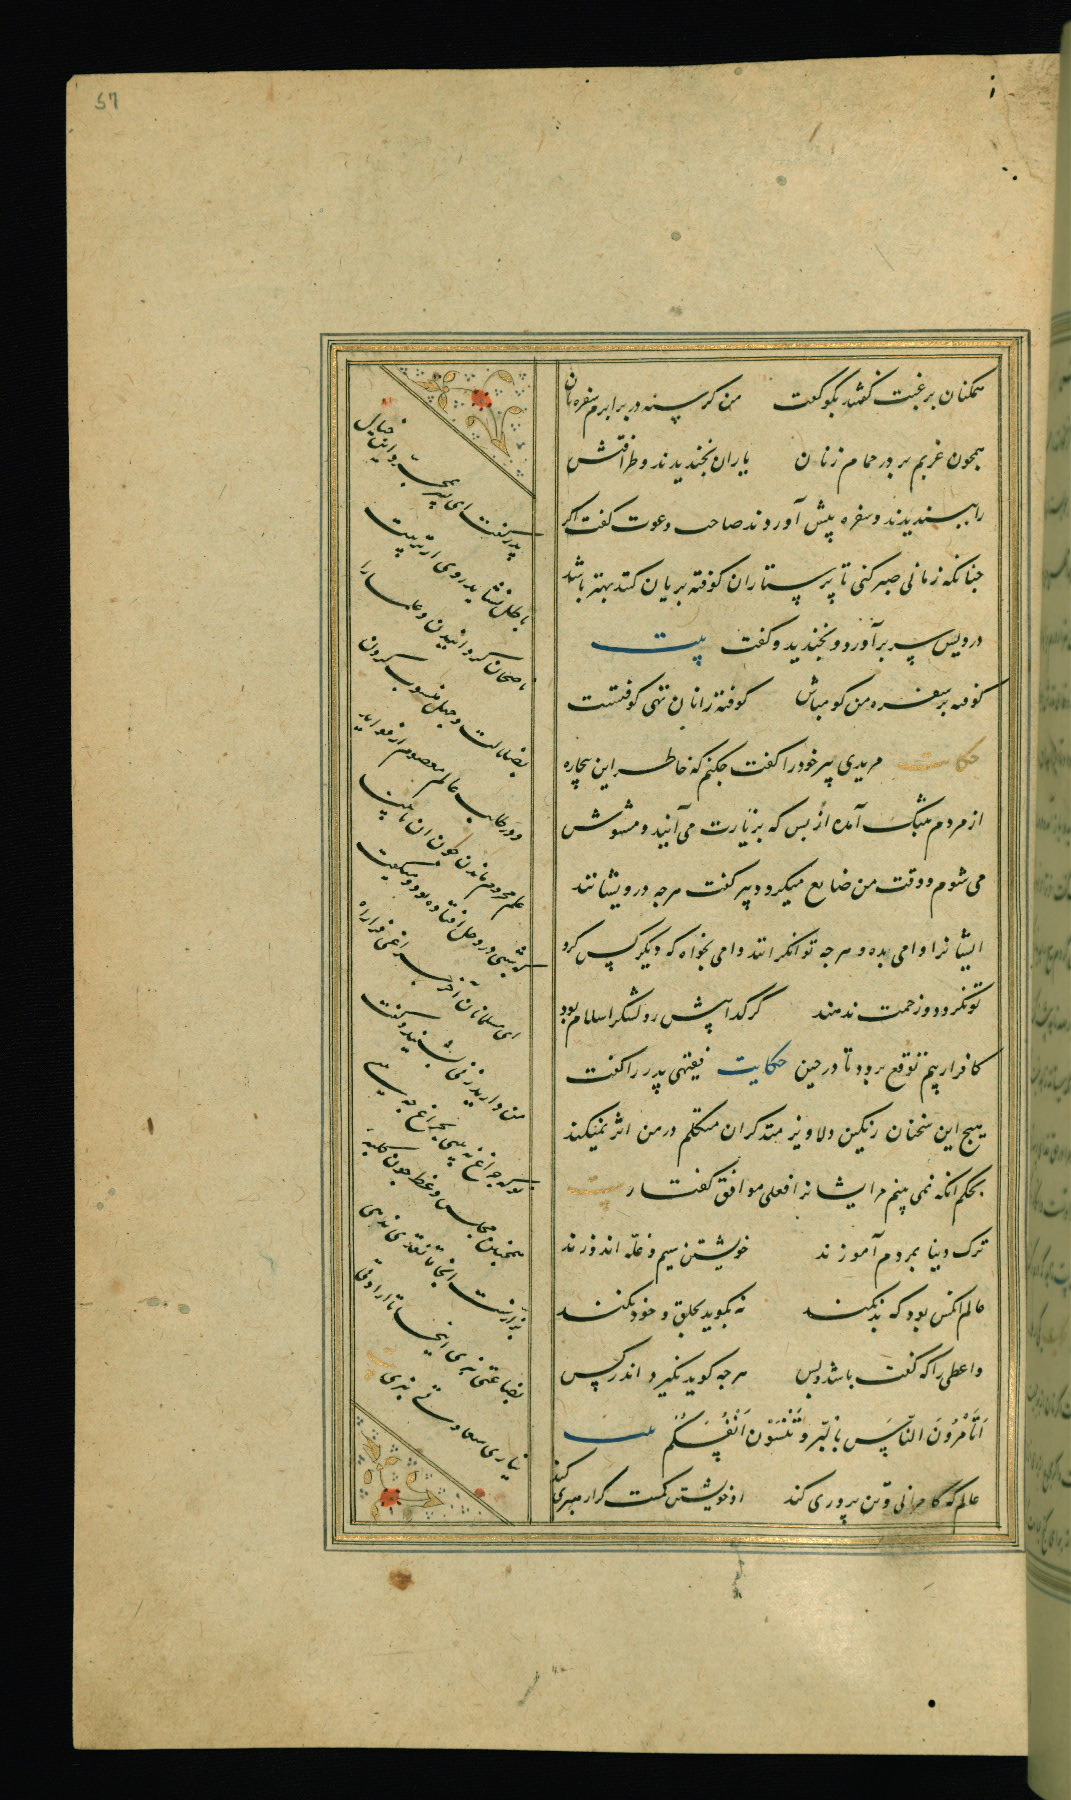 57
همکنان برغبت کفتند بکو کفت من کرسنه در برابرم سفره نان
همچون عزبم بر در حمام زنان یاران بخندیدند و ظرافتش
را بپسندیدند و سفره پیش آوردند صاحب دعوت کفت اکر
چنانکه زمانی صبر کنی تا پرستاران کوفته بریان کنند بهتر باشد
درویس سر برآورد و بخندید و کفت بیت
کوفته بر سفره من کو مباش کوفته را نان تهی کوفتست
حکایت مریدی پیر خود را کفت چکنم که خاطر این بیچاره
از مردم بتنک آمده از بس که بزیارت می آیند و مشوش
می شوم و وقت من ضایع میکردد پیر کفت هرچه درویشانند
ایشانرا وامی بده و هرچه توانکرانند وامی بخواه که دیکر کس کرد
تو نکردد و زحمت ندهند کر کدا پیش رو لشکر اسلام بود
کافر از بیم توقع برود تا در چین حکایت فقیهی پدر را کفت
هیچ این سخنان رنکین دلاویز متذکران متکلم در من اثر نمیکند
بحکم انکه نمی بینم مر ایشانرا فعلی موافق کفتار بیت
ترک دنیا بمردم آموزند خویشتن سیم و غله اندوزند
عالم انکس بود که بد نکند نه بکوید بخلق و خود نکند
واعظی را که کفت باشد و بس هرچه کوید نکیرد اندر کس
اَتَأْمُرُونَ النّاسَ بِالْبِّرِ وَتَنْسَوْنَ اَنْفُسَکُمْ بیت
عالم که کامرانی و تن پروری کند او خویشتن کمست کرا رهبری کند
پدر کفت ای پسر بمجرد این خیال
باطل نشاید روی از تربیت
ناصحان کردانیدن و علما را
بضلالت و جهل منسوب کردن
و در طلب عالم معصوم از فواید
علم محروم ماندن چون ان نابینا
که شبی در وحل افتاده بود و میکفت
ای مسلمانان آخر چراغی فرا راه
من دارید زنی بشنید و کفت
تو که چراغ نه بینی بچراغ چه بینی
همچنین مجلس وعظ چون کلبه
بزازنست انجا تا نقدی ندهی
بضاعتی نبری اینجا تا ارادتی
نیاری سعادتی نبری